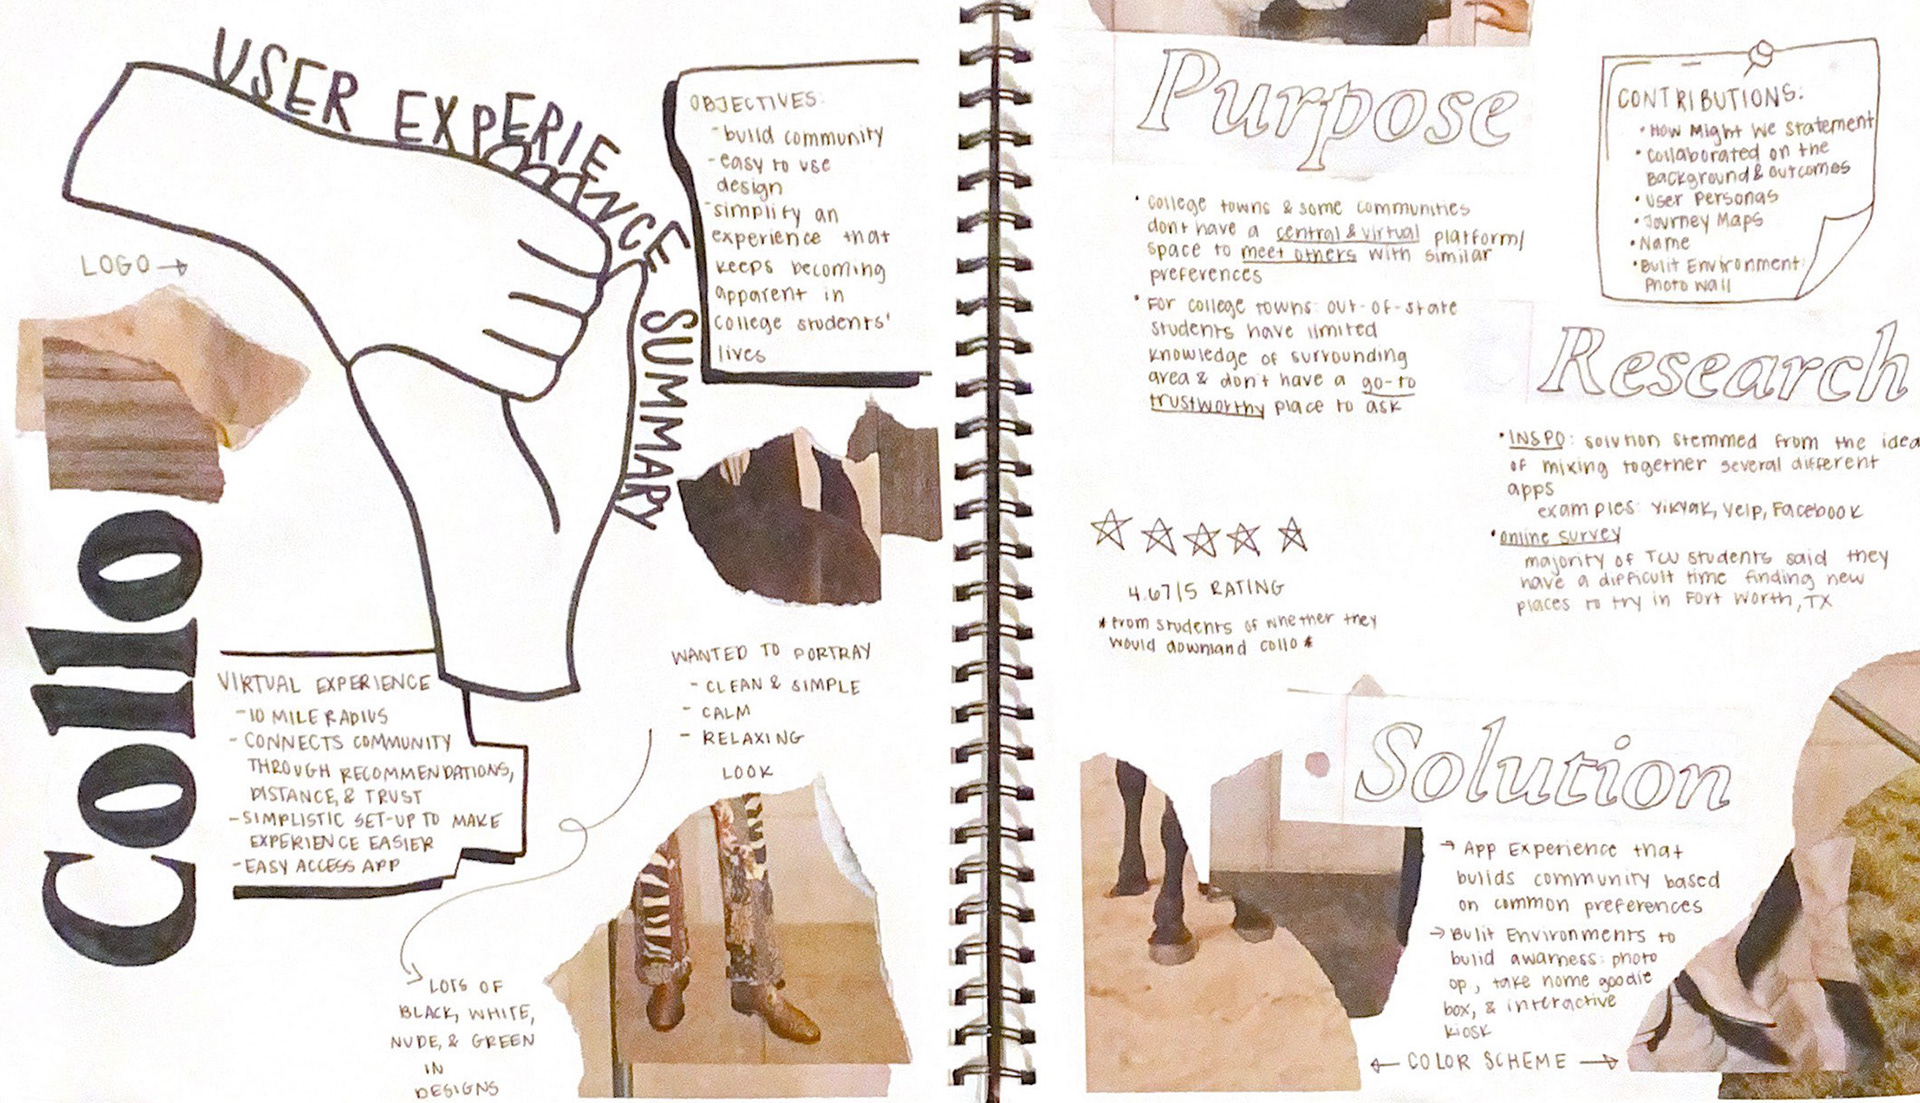 USER EXPERIENCE SUMMARY
LOGO →
Collo
OBJECTIVES:
- build community
- easy to use
design
- simplify an
experience that
keeps becoming
apparent in
college students'
lives
VIRTUAL EXPERIENCE
- 10 MILE RADIUS
- CONNECTS COMMUNITY
THROUGH RECOMMENDATIONS,
DISTANCE, & TRUST
- SIMPLISTIC SET-UP TO MAKE
EXPERIENCE EASIER
- EASY ACCESS APP
WANTED TO PORTRAY
- CLEAN & SIMPLE
- CALM
- RELAXING
LOOK
LOTS OF
BLACK, WHITE,
NUDE, & GREEN
IN
DESIGNS
Purpose
• College towns & some communities
don't have a central & virtual platform/
space to meet others with similar
preferences
• For college towns: out-of-state
students have limited
knowledge of surrounding
area & don't have a go-to
trustworthy place to ask
4.67/5 RATING
* from students of whether they
would downland collo *
CONTRIBUTIONS:
• How Might We Statement
• Collaborated on the
Background & Outcomes
• User Personas
• Journey Maps
• Name
• Bulit Environment:
Photo Wall
Research
• INSPO: solution stemmed from the idea
of mixing together several different
apps
examples: YikYak, Yelp, Facebook
• online survey
majority of TCU students said they
have a difficult time finding new
places to try in Fort Worth, TX
Solution
→ App Experience that
builds community based
on common preferences
→ Bulit Environments to
bulid awarness: photo
op, take home goodie
box, & interactive
kiosk
← COLOR SCHEME →